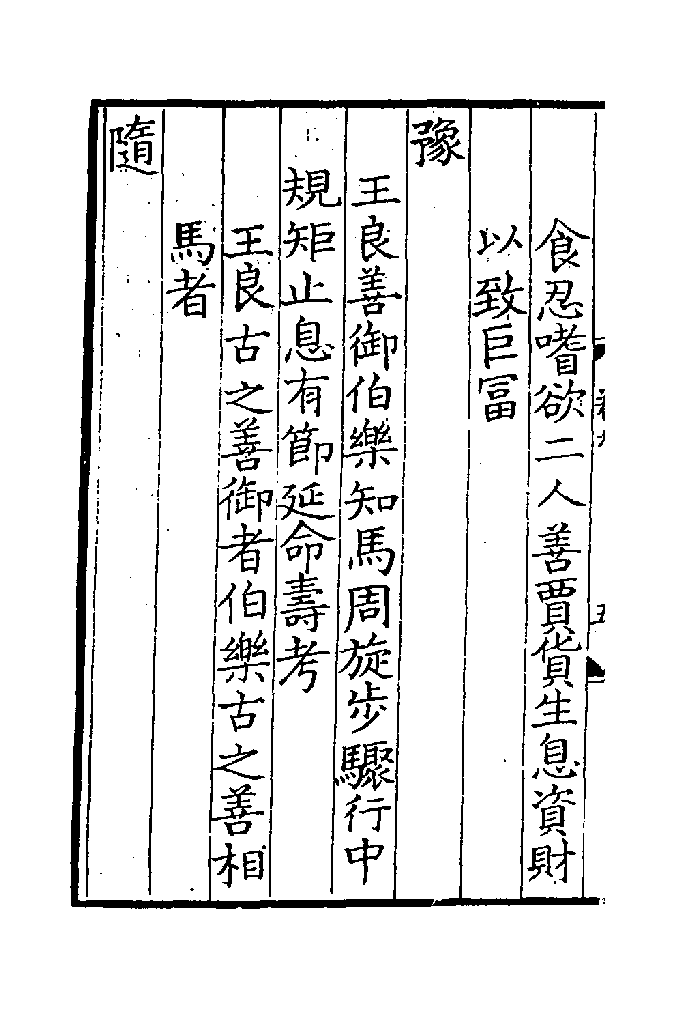 食忍嗜欲二人善賈貨生息資財
以致巨冨
豫
王良善御伯樂知馬周旋步驟行中
規矩止息有節延命壽考
王良古之善御者伯樂古之善相
馬者
隨